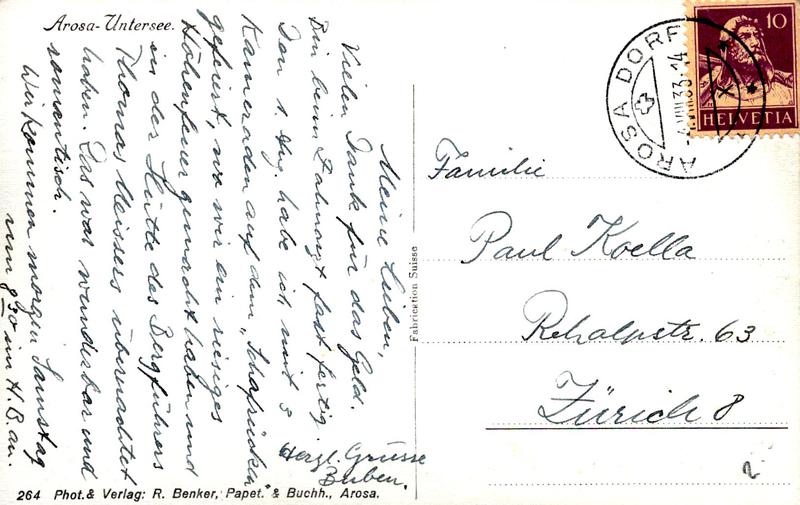 Arosa-Untersee.
Meine Lieben,
Vielen Dank für das Geld.
Bin beim Zahnarzt fast fertig.
Den 1. Aug. habe ich mit 3
Kameraden auf dem „Schafrücken“
gefeiert, wo wir ein riesiges
Höhenfeuer gemacht haben und
in der Hütte des Bergführers
Thomas Meissers übernachtet
haben. Das war wunderbar und
romantisch.
Wir kommen morgen Samstag
um 9 30 im H.B. an.
Herzl. Grüsse
Buben.
Fabrication Suisse
10
HELVETIA
AROSA DORF
AROSA
VIII.33.-14
Familie
Paul Koella
Rehalpstr. 63
Zürich 8
2
264 Phot. & Verlag: R. Benker, Papet. & Buchh., Arosa.